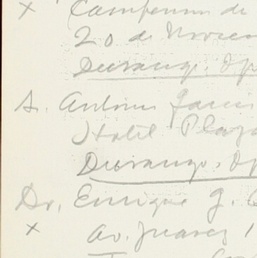 x Campeon de
20 de Novie
Durango, Dg
S. Antonio Garci
Hotel Plaza
Durango, Dg
Dr. Enrique J. C
x Av. Juarez 1